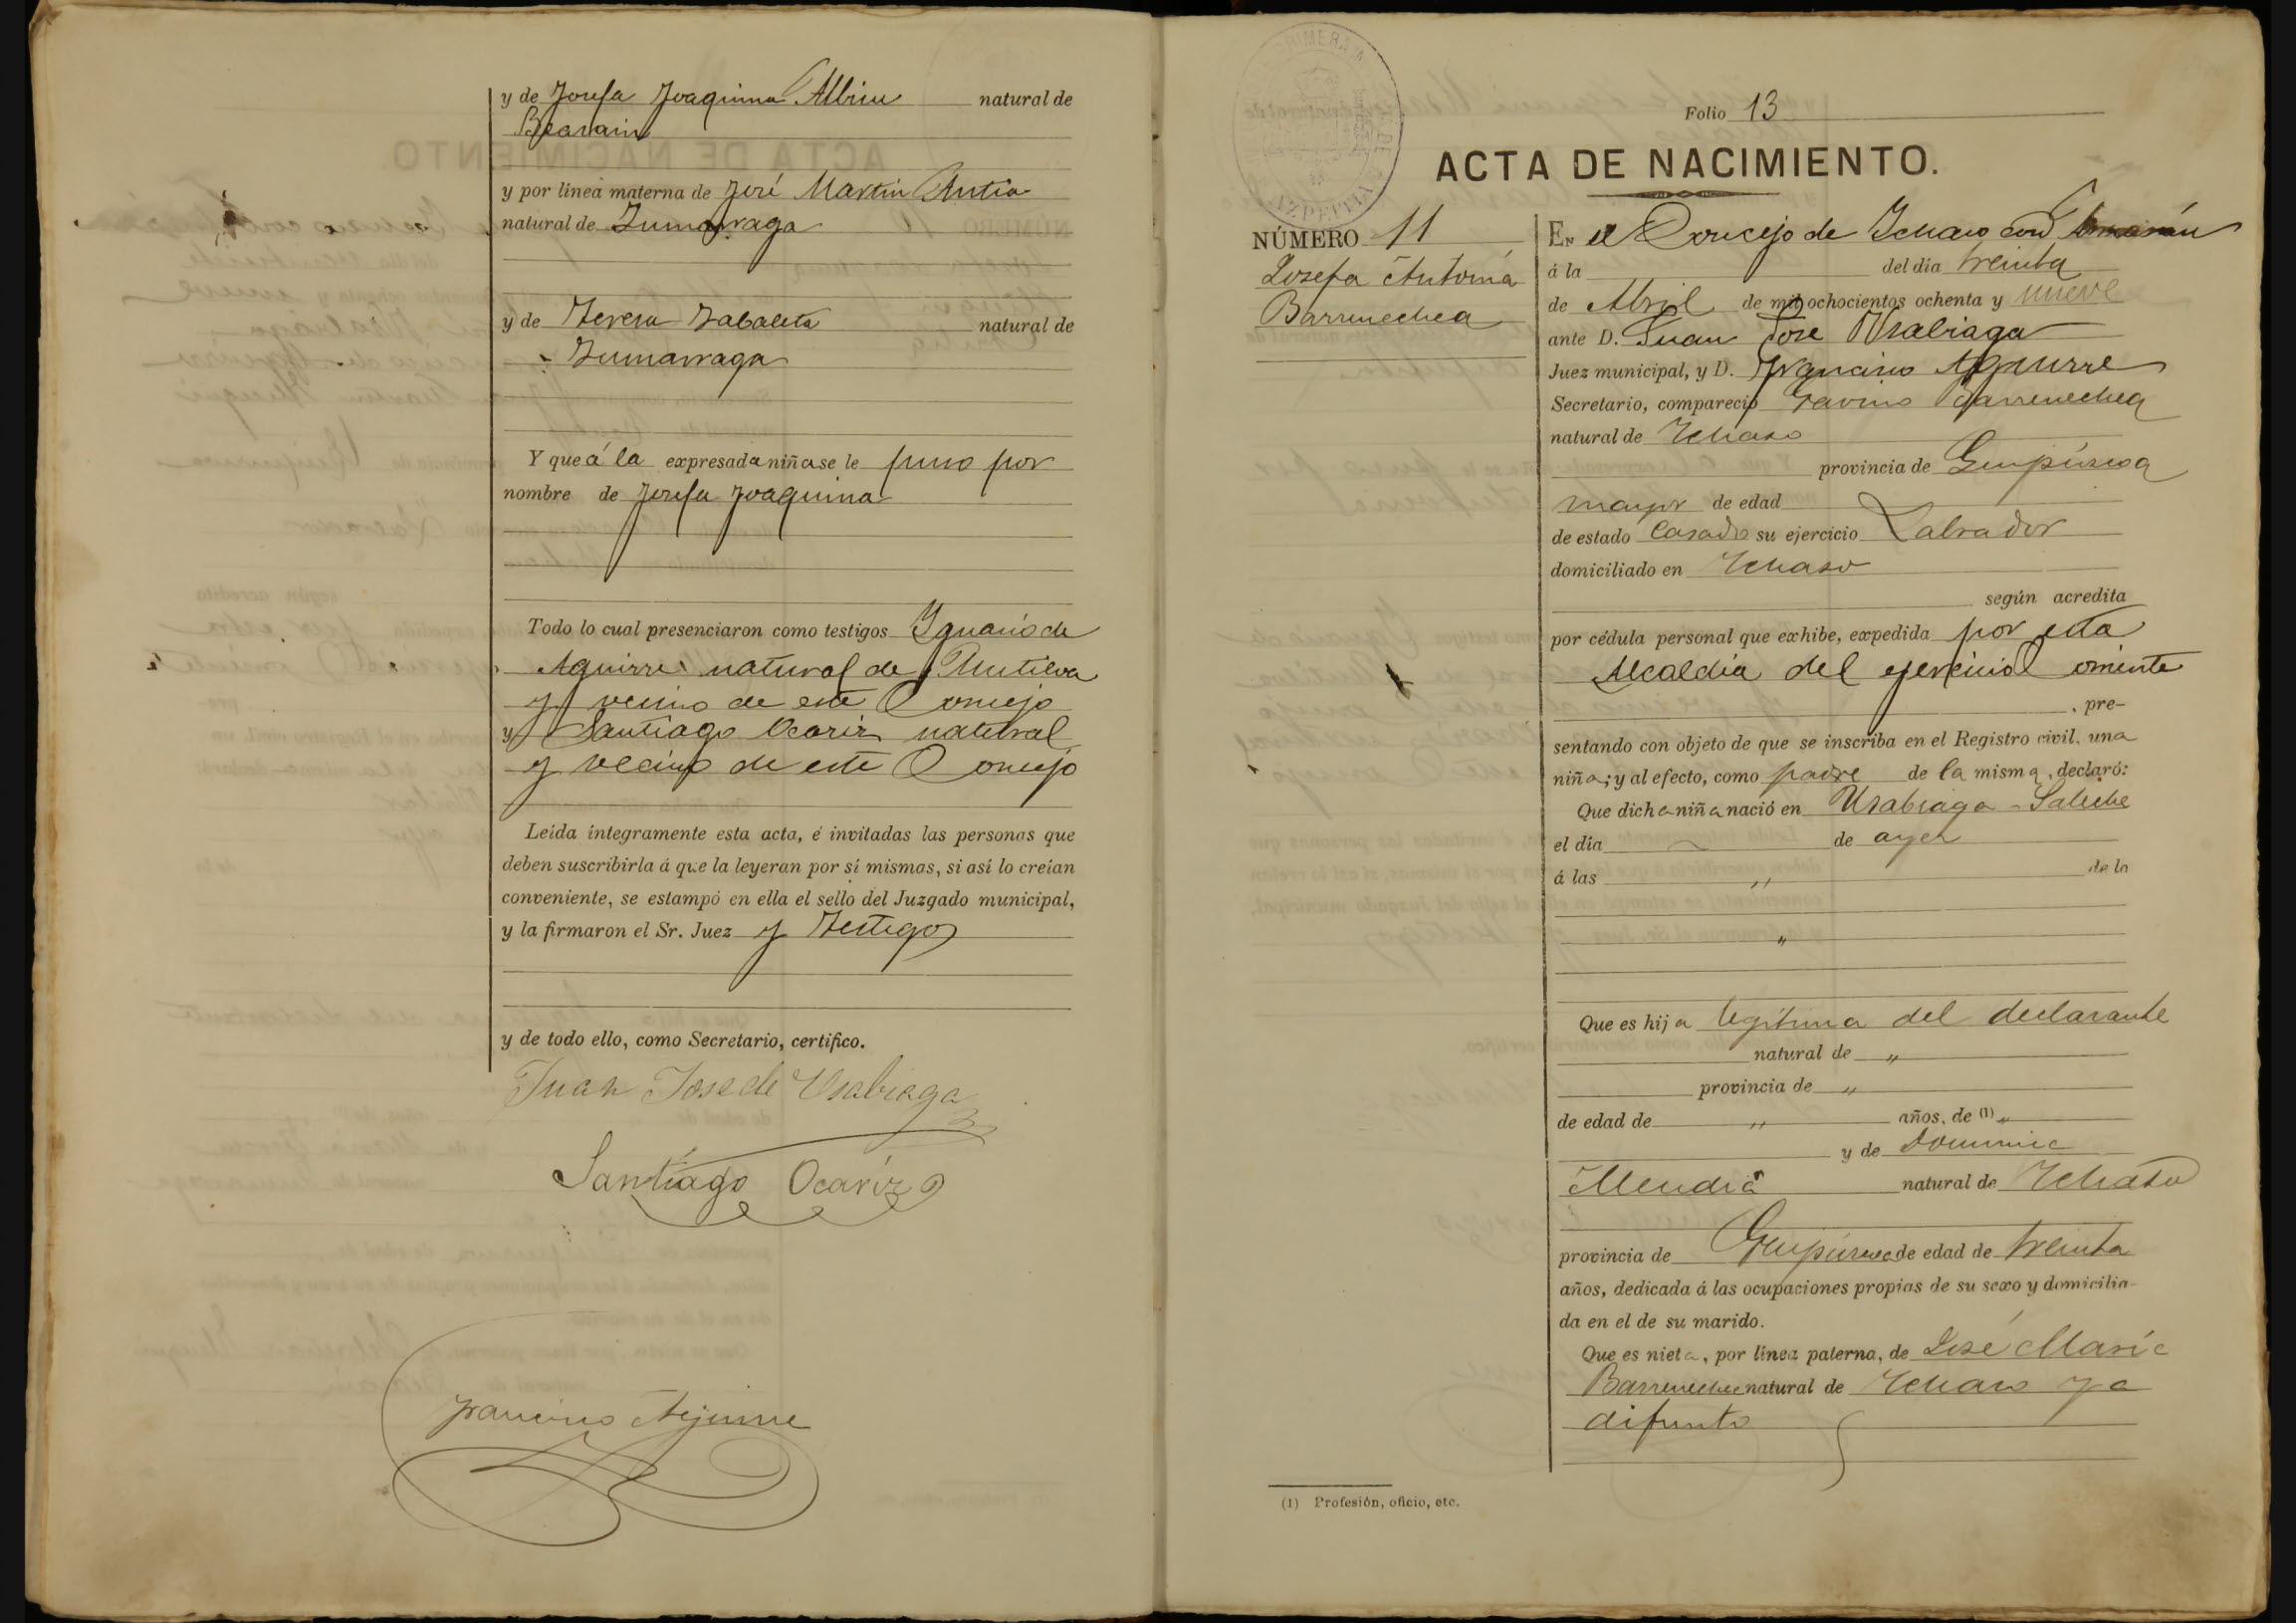 y de Josefa Joaquina Albisu natural de
Beasain
y por línea materna de José Martin Antia
natural de Zumarraga
y de Teresa Zabaleta natural de
Zumarraga
Y que á la expresada niña se le puso por
nombre de Josefa Joaquina
Todo lo cual presenciaron como testigos Ygnacio de
Aguirre natural de Mutiloa
y vecino de este Concejo
y Santiago Ocariz natural
y vecino de este Concejo
Leída íntegramente esta acta, é invitadas las personas que
deben suscribirla á que la leyeran por sí mismas, si así lo creían
conveniente, se estampó en ella el sello del Juzgado municipal,
y la firmaron el Sr. Juez y Testigos
y de todo ello, como Secretario, certifico.
Juan José de Usabiaga
Santiago Ocariz
Francisco Aguirre
PRIMERA
AZPEITIA
Folio 13
ACTA DE NACIMIENTO.
NÚMERO 11
Josefa Antonia
Barrenechea
En el Concejo de Ychaso con
á la del día treinta
de Abril de mil ochocientos ochenta y nueve
ante D. Juan José Usabiaga
Juez municipal, y D. Francisco Aguirre
Secretario, compareció Gavino Barrenechea
natural de Ychaso
provincia de Guipúzcoa
mayor de edad
de estado Casado su ejercicio Labrador
domiciliado en Ychaso
según acredita
por cédula personal que exhibe, expedida por esta
Alcaldia del ejercicio Corriente
, pre-
sentando con objeto de que se inscriba en el Registro civil, una
niña; y al efecto, como padre de la misma, declaró:
Que dicha niña nació en Usabiaga-Saleche
el día de ayer
á las " de la
"
Que es hija legítima del declarante
natural de "
provincia de "
de edad de " años, de (1) "
y de Dominica
Mendia natural de Ychaso
provincia de Guipúzcoa de edad de treinta
años, dedicada á las ocupaciones propias de su sexo y domicilia-
da en el de su marido.
Que es nieta, por línea paterna, de José Maria
Barrenechea natural de Ychaso ya
difunto
(1) Profesión, oficio, etc.